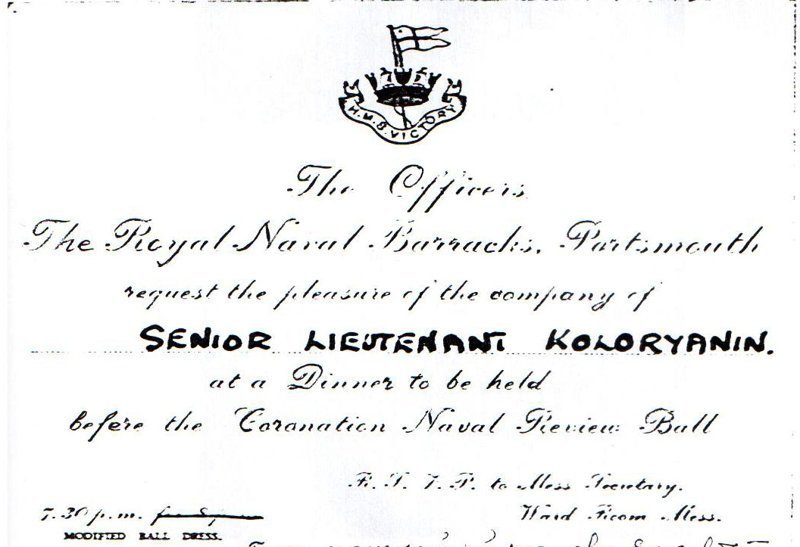 H.M.S VICTORY
The Officers
The Royal Naval Barracks, Portsmouth
request the pleasure of the company of
SENIOR LIEUTENANT KOLORYANIN.
at a Dinner to be held
before the Coronation Naval Review Ball
R.S.V.P. to Mess Secretary.
Ward Room Mess.
7.30 p.m.
MODIFIED BALL DRESS.